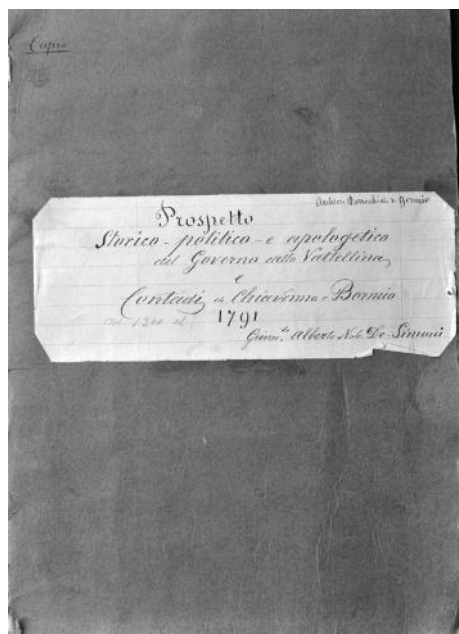 Copia
Archivio Parrocchiale di Bormio
Prospetto
Storico - politico - e apologetico
del Governo della Valtellina,
e
Contadi di Chiavenna e Bormio
1791
Alberto Nob. De-Simoni